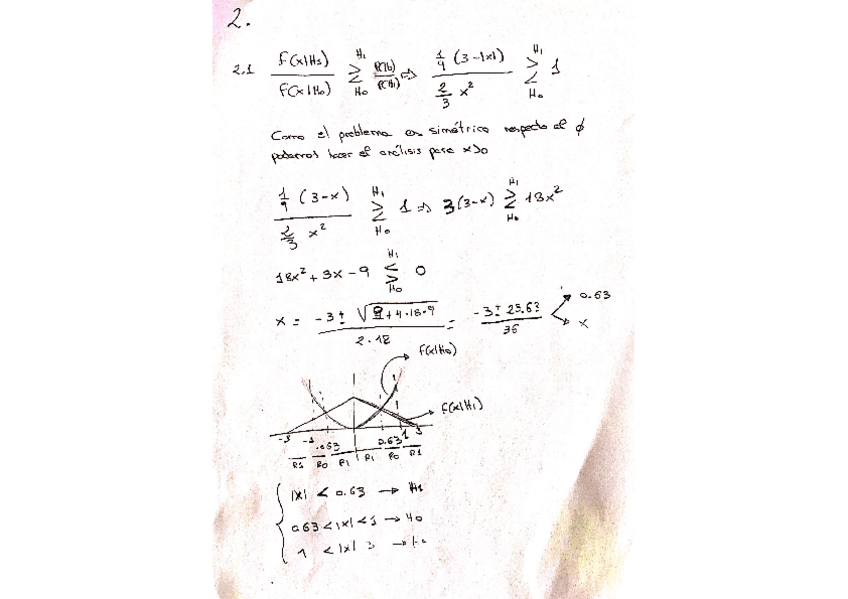 2.
2.1 f(x|H1) / f(x|H0) ≷ H1 H0 P(H0)/P(H1) ⇒ 1/9 (3-|x|) / 2/3 x² ≷ H1 H0 1
Como el problema es simétrico respecto al ϕ
podemos hacer el análisis para x>0
1/9 (3-x) / 2/3 x² ≷ H1 H0 1 ⇒ 3(3-x) ≷ H1 H0 18x²
18x² + 3x - 9 ≶ H1 H0 0
x = -3 ± √(9+4·18·9) / 2·18 = -3 ± 25.63 / 36 0.63 x
f(x|H0)
f(x|H1)
-3 -1 -0.63 0.63 1 3
R1 R0 R1 R1 R0 R1
|x| < 0.63 → H1
0.63 < |x| < 1 → H0
1 < |x| 3 →